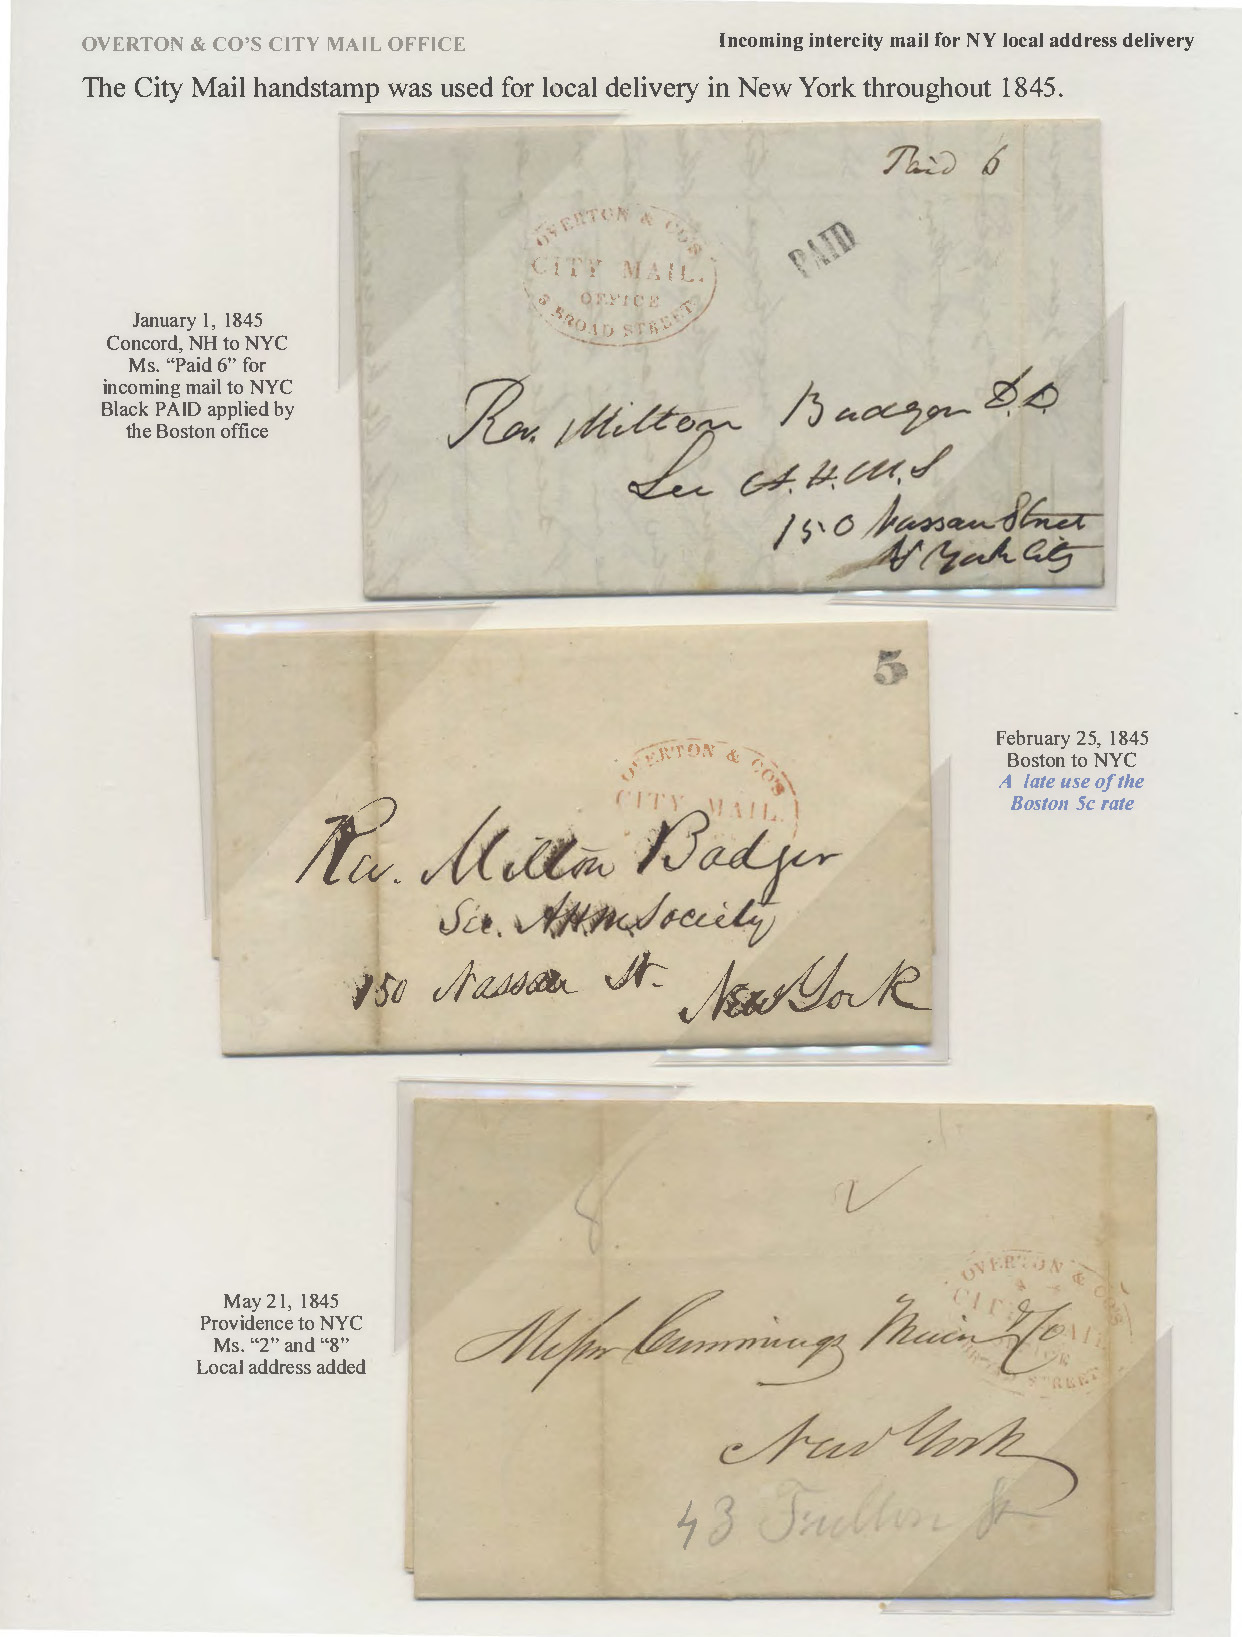 OVERTON & CO'S CITY MAIL OFFICE
Incoming intercity mail for NY local address delivery
The City Mail handstamp was used for local delivery in New York throughout 1845.
Paid 6
OVERTON & CO'S
CITY MAIL.
OFFICE
3 BROAD STREET
PAID
January 1, 1845
Concord, NH to NYC
Ms. “Paid 6” for
incoming mail to NYC
Black PAID applied by
the Boston office
Rev. Milton Badger D.D.
Sec A.H.M.S
150 Nassau Street
N York City
5
OVERTON & CO'S
CITY MAIL.
February 25, 1845
Boston to NYC
A late use of the
Boston 5c rate
Rev. Milton Badger
Sec. AHM Society
150 Nassau St.
New York
2
8
OVERTON & CO'S
CITY MAIL
OFFICE
BROAD STREET
May 21, 1845
Providence to NYC
Ms. “2” and “8”
Local address added
Messrs Cummings Main & Co
New York
43 Fulton St